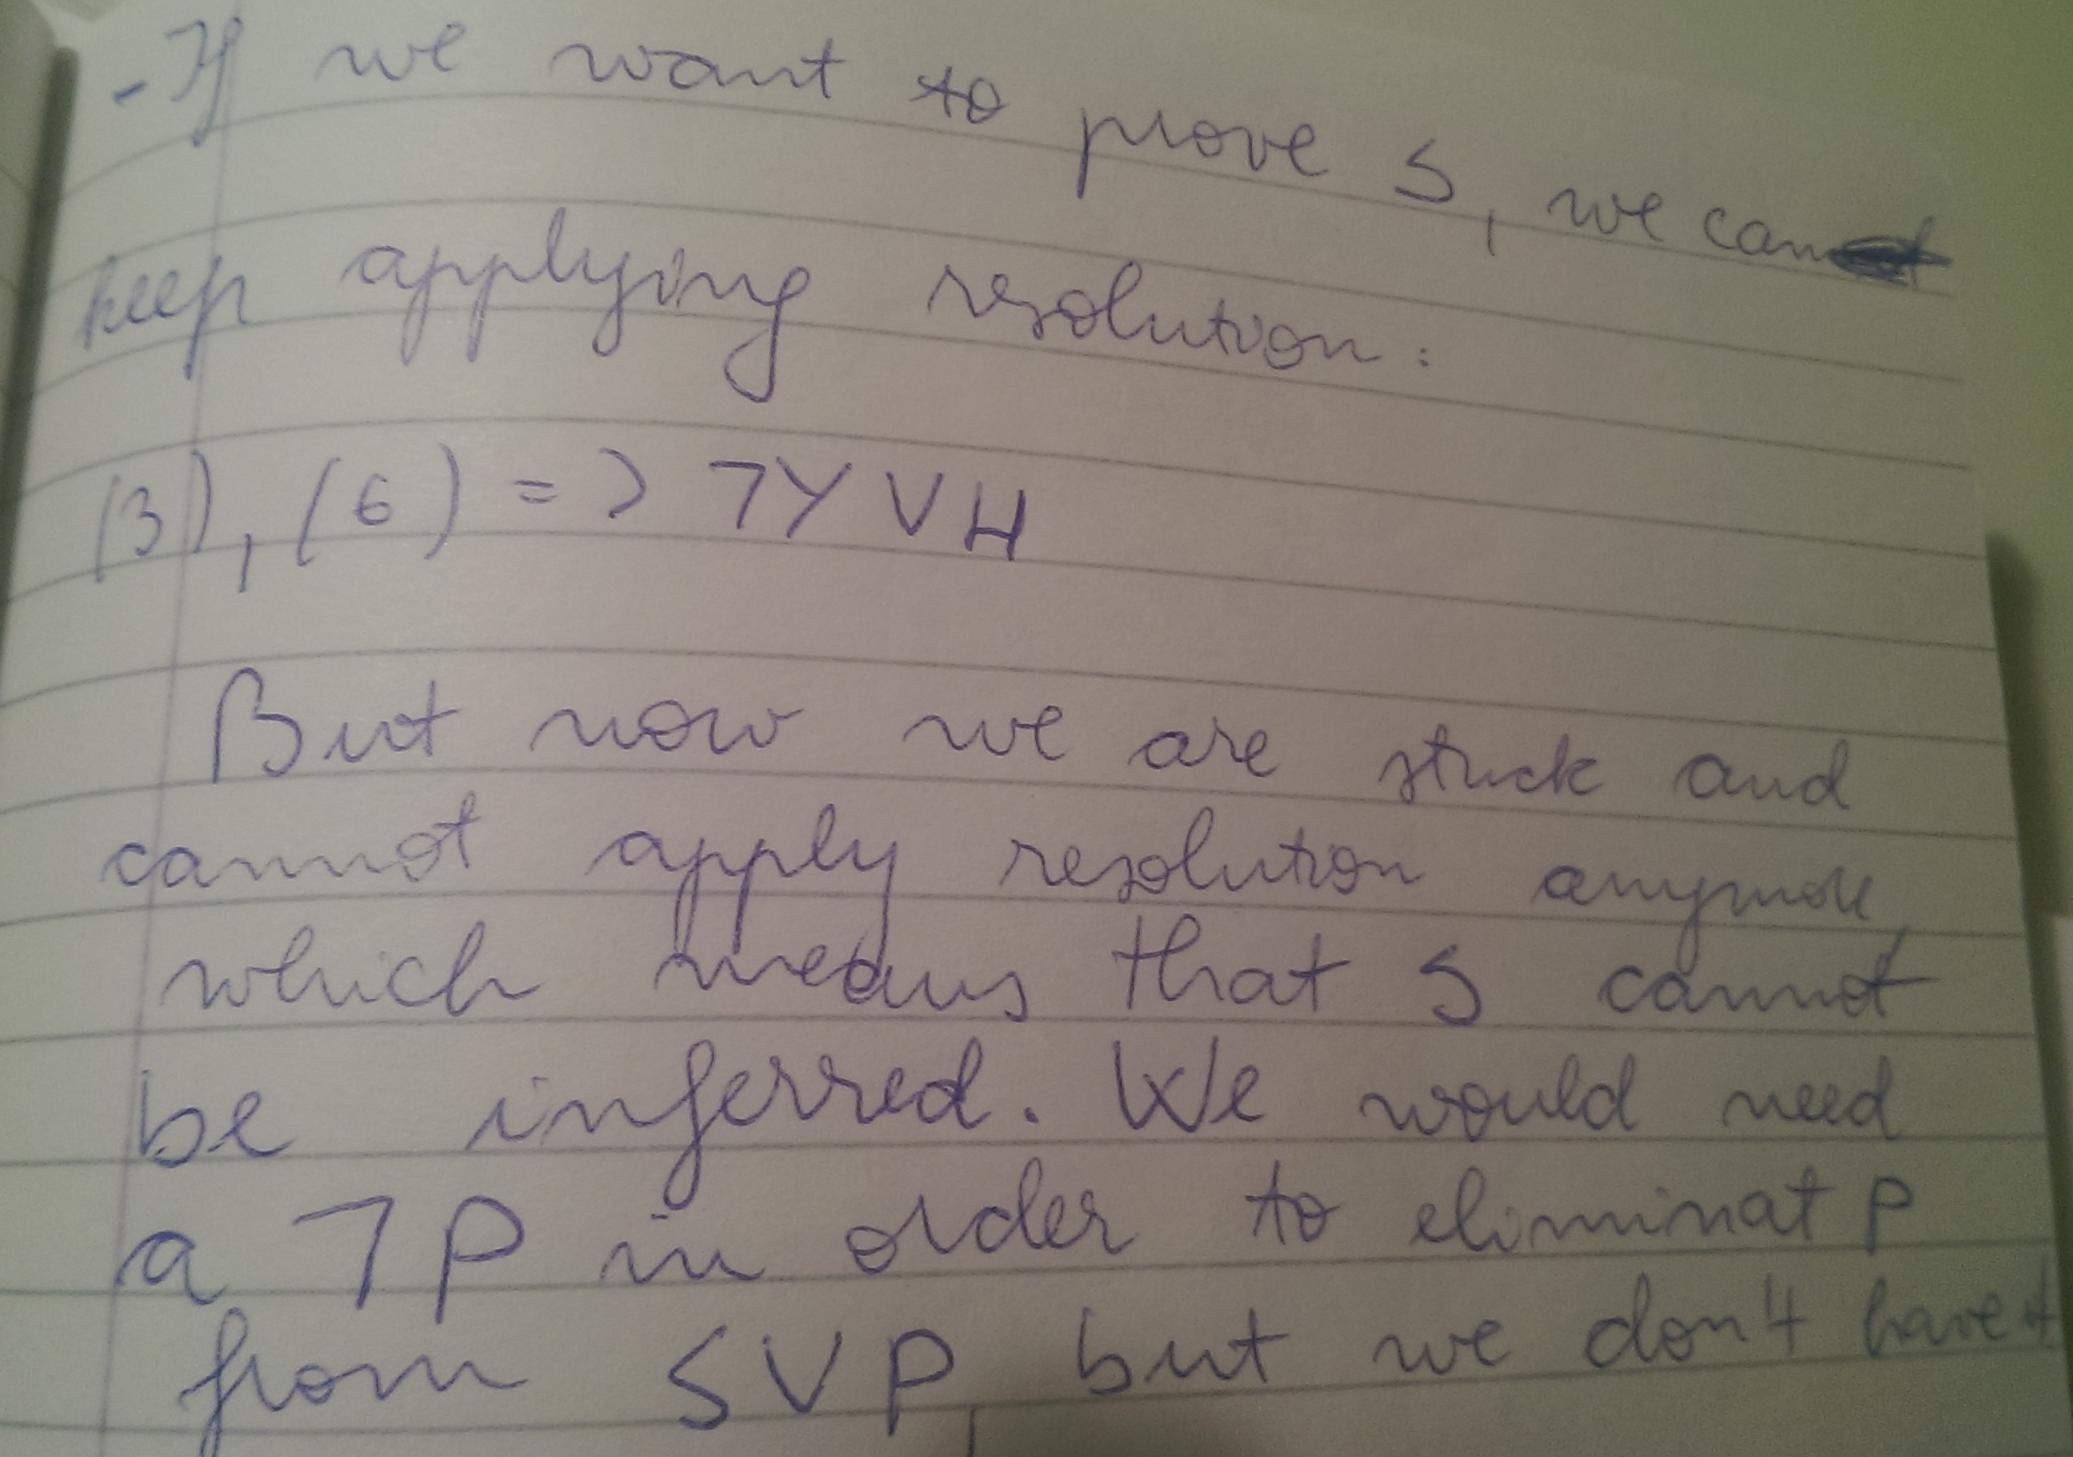 - If we want to prove S, we can
keep applying resolution:
(3), (6) => ¬Y V H
But now we are stuck and
cannot apply resolution anymore,
which means that S cannot
be inferred. We would need
a ¬P in order to eliminat P
from S V P, but we don't have it